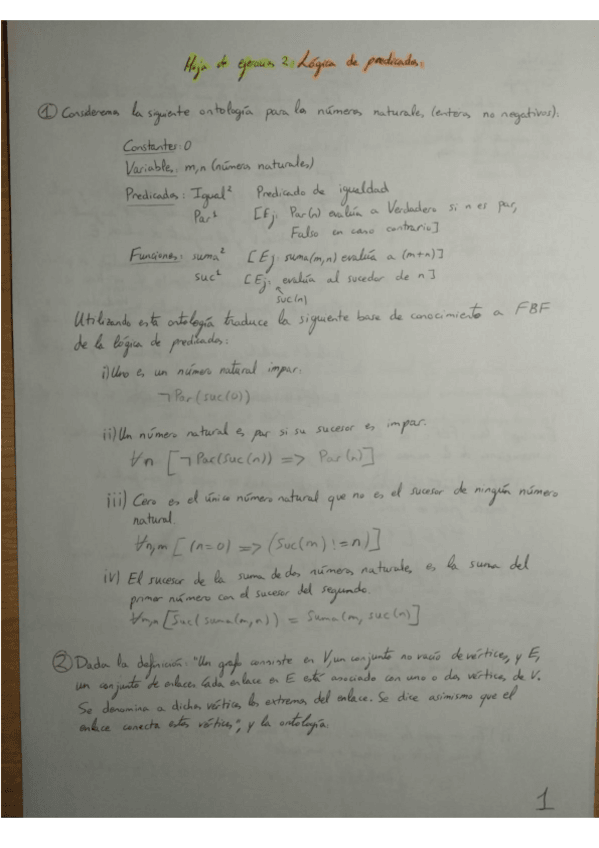 Hoja de ejercicios 2: Lógica de predicados.
① Consideremos la siguiente ontología para los números naturales (enteros no negativos):
Constantes: 0
Variables: m,n (números naturales)
Predicados: Igual² Predicado de igualdad
Par¹ [Ej: Par(n) evalúa a Verdadero si n es par,
Falso en caso contrario]
Funciones: suma² [Ej: suma(m,n) evalúa a (m+n)]
suc¹ [Ej: evalúa al sucesor de n]
suc(n)
Utilizando esta ontología traduce la siguiente base de conocimiento a FBF
de la lógica de predicados:
i) Uno es un número natural impar.
¬Par(suc(0))
ii) Un número natural es par si su sucesor es impar.
∀n [¬Par(suc(n)) => Par(n)]
iii) Cero es el único número natural que no es el sucesor de ningún número
natural.
∀n,m [(n=0) => (Suc(m) != n)]
iv) El sucesor de la suma de dos números naturales es la suma del
primer número con el sucesor del segundo.
∀m,n [Suc(suma(m,n)) = Suma(m, suc(n)]
② Dada la definición: "Un grafo consiste en V, un conjunto no vacío de vértices, y E,
un conjunto de enlaces. Cada enlace en E está asociado con uno o dos vértices de V.
Se denomina a dichos vértices los extremos del enlace. Se dice asimismo que el
enlace conecta estos vértices", y la ontología.
1